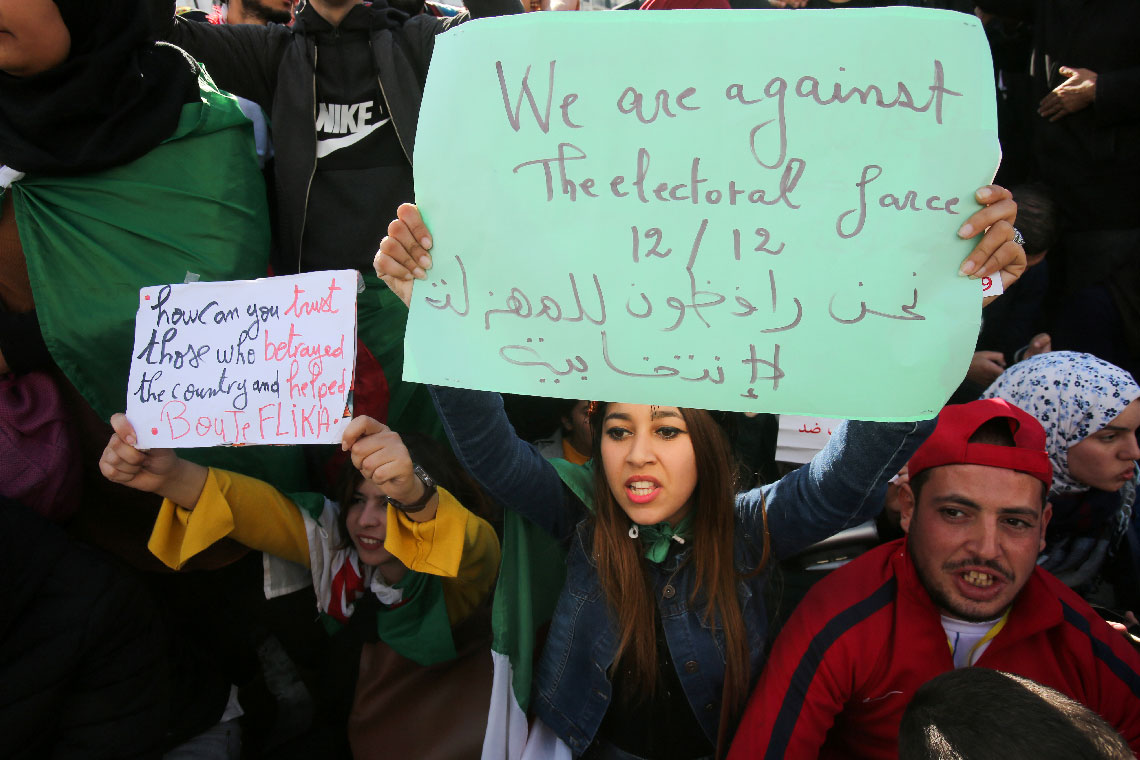 NIKE
We are against
The electoral farce
12/12
نحن رافضون للمهزلة
الإنتخابية
9
• how can you trust
those who betrayed
the country and helped
BouTe FLIKA •
ضد